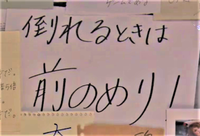 倒れるときは
前のめり!